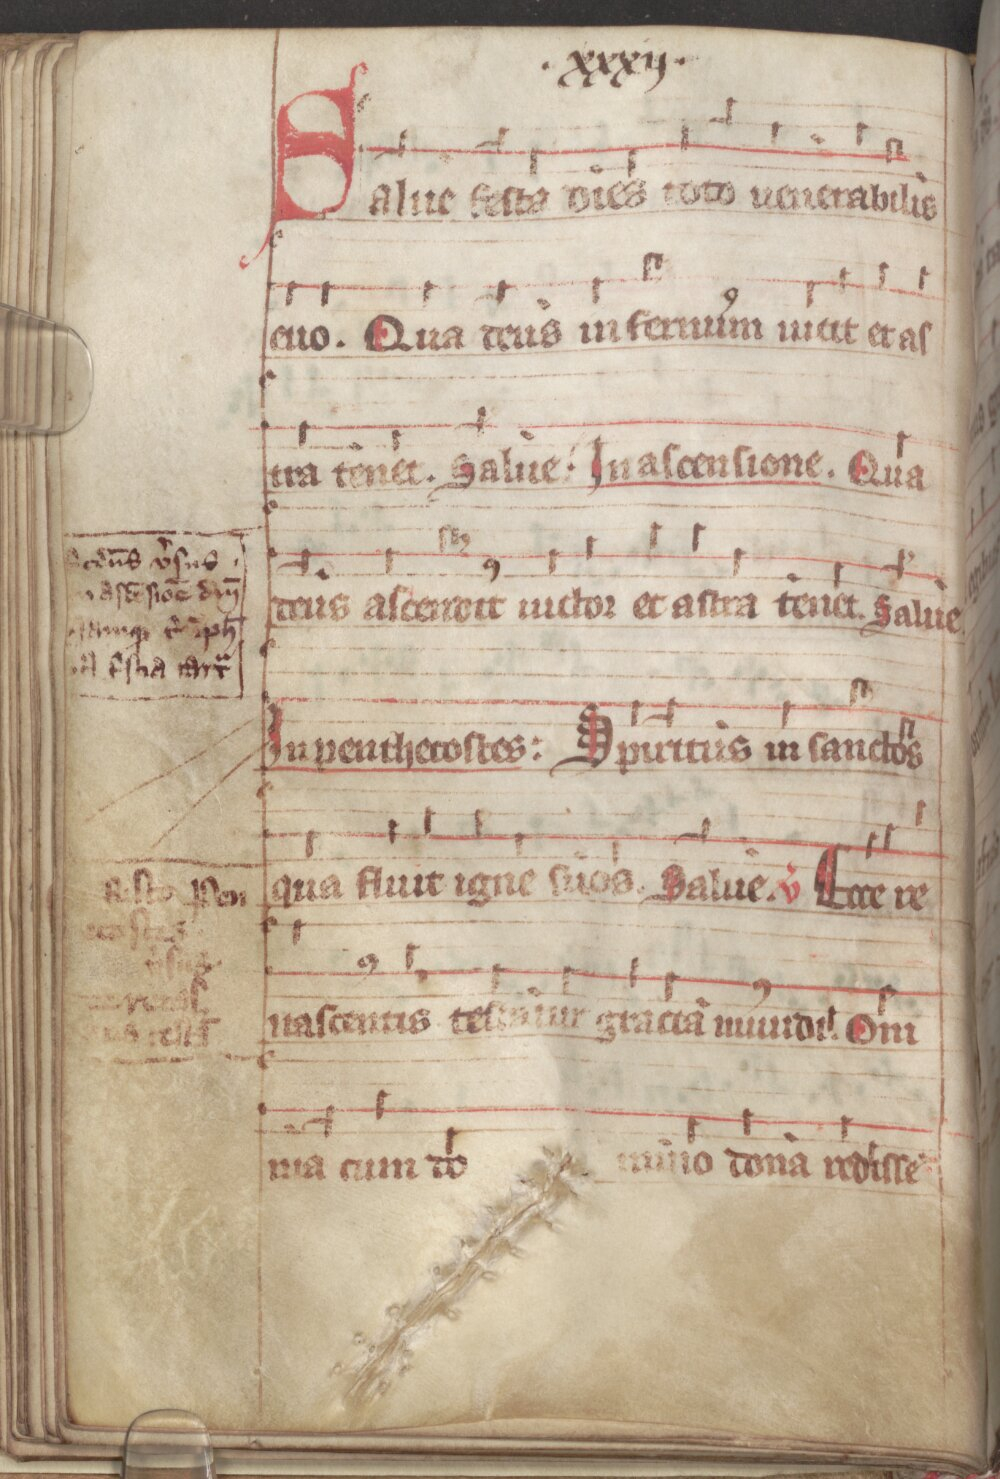 · xxxij ·
Salue festa dies toto uenerabilis
euo. Qua deus infernum uicit et as
tra tenet. Salue. In ascensione. Qua
deus ascendit uictor et astra tenet. Salue
In penthecostes: Spiritus in sanctos
qua fluit igne suos. Salue. v̄ Ecce re
nascentis testatur gracia mundi. Om
nia cum do mino dona redisse